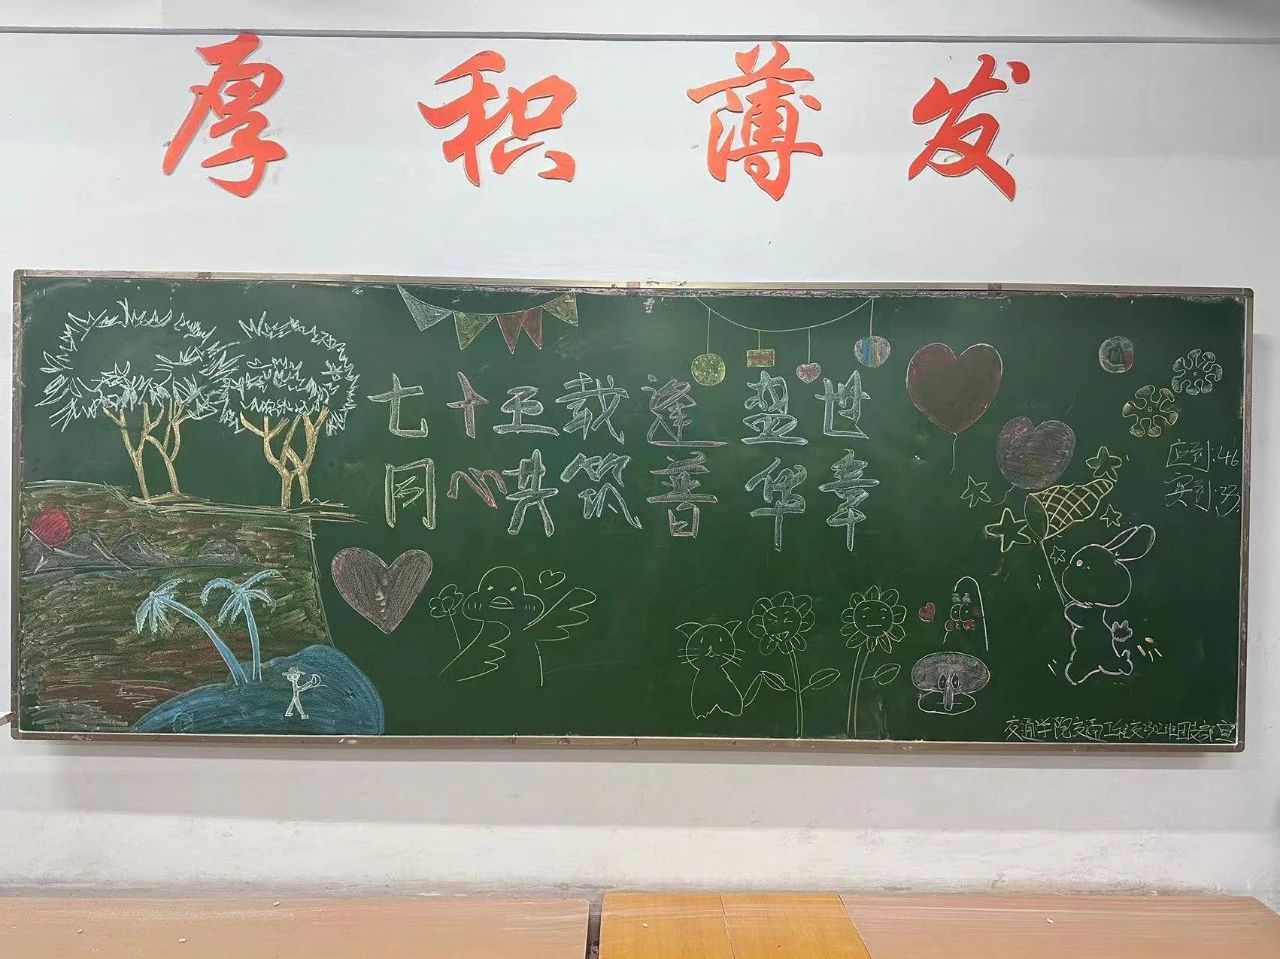 厚积薄发
七十五载逢盛世
同心共筑普华章
应到:46
实到:33
交通学院交通工程交232班团支部宣